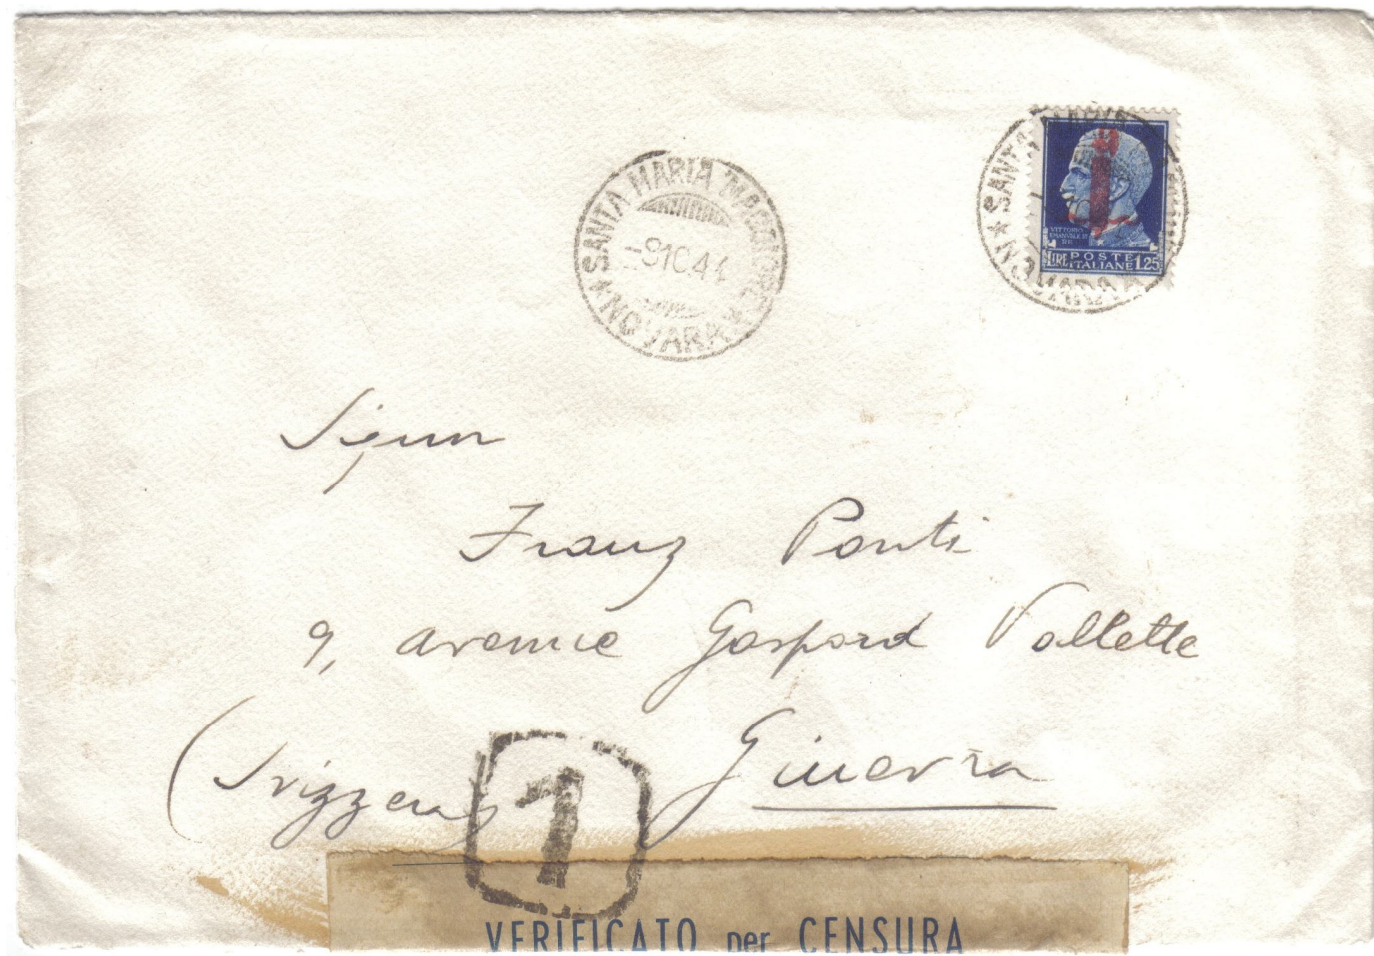 SANTA MARIA MAGGIORE
-9 10.44
* NOVARA *
SANTA
NOVARA
VITTORIO
EMANUELE III
RE
LIRE POSTE ITALIANE 1.25
Signor
Franz Ponti
9, avenue Gaspard Vallette
Ginevra
(Svizzera)
1
VERIFICATO per CENSURA